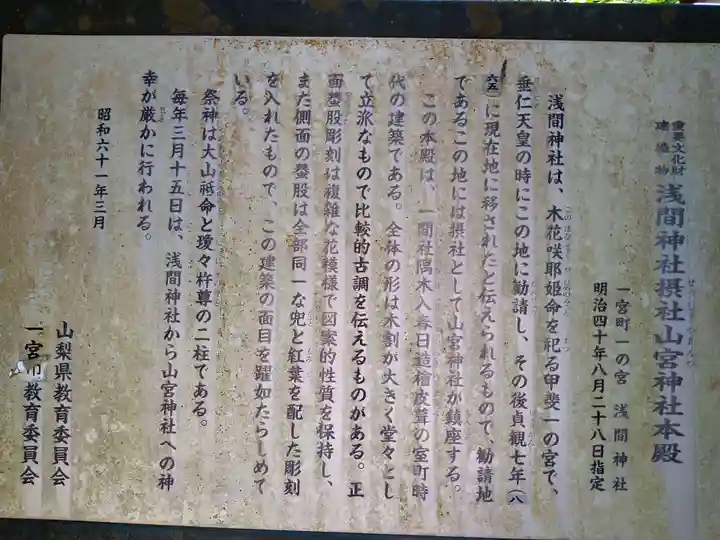 重要文化財
建造物
浅間神社摂社山宮神社本殿
一宮町一の宮 浅間神社
明治四十年八月二十八日指定
浅間神社は、木花咲耶姫命を祀る甲斐一の宮で、
垂仁天皇の時にこの地に勧請し、その後貞観七年（八
六五）に現在地に移されたと伝えられるもので、勧請地
であるこの地には摂社として山宮神社が鎮座する。
この本殿は、一間社隅木入春日造檜皮葺の室町時
代の建築である。全体の形は木割が大きく堂々とし
て立派なもので比較的古調を伝えるものがある。正
面蟇股彫刻は複雑な花模様で図案的性質を保持し、
また側面の蟇股は全部同一な兜と紅葉を配した彫刻
を入れたもので、この建築の面目を躍如たらしめて
いる。
祭神は大山祗命と瓊々杵尊の二柱である。
毎年三月十五日は、浅間神社から山宮神社への神
幸が厳かに行われる。
昭和六十一年三月
山梨県教育委員会
一宮町教育委員会